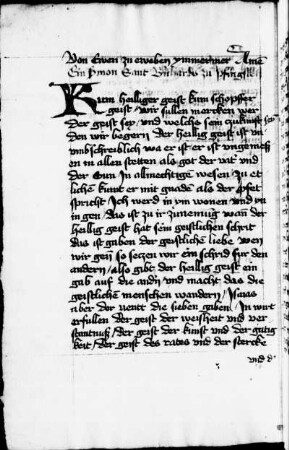 Von Ewen zu eweben ymmermer Ame
Ein sermon Sant Bernhards zu pfingst
Kum heiliger geist kum schopffer
geist / wir sullen mercken wer
der geist sey / und welchs sein zukunft sey
den wir begern der heilig geist ist vn
vmbschreiblich wa er ist er ist vngemess
en in allen stetten als got der vat vnd
der Sun in allmechtige wesen / zu et
lichen kunt er mit gnade als der pfet
spricht Ich werd in ym wonen vnd yn
in gen / das ist zu ir zunemug wan der
heilig geist hat sein geistlichen schrit
das ist gaben der geistliche liebe wen
wir gen so setzen wir ein schrid fur den
andern / also gibt der heilig geist ein
gab auf die andn vnd macht das die
geistlichen menschen wandern / Isaias
aber der nent die siben gaben / In wirt
erfullen der geist der weisheit vnd ver
stantnuß / der geist der kunst vnd der gutig
keit / der geist des rates vnd der stercke
vnd d